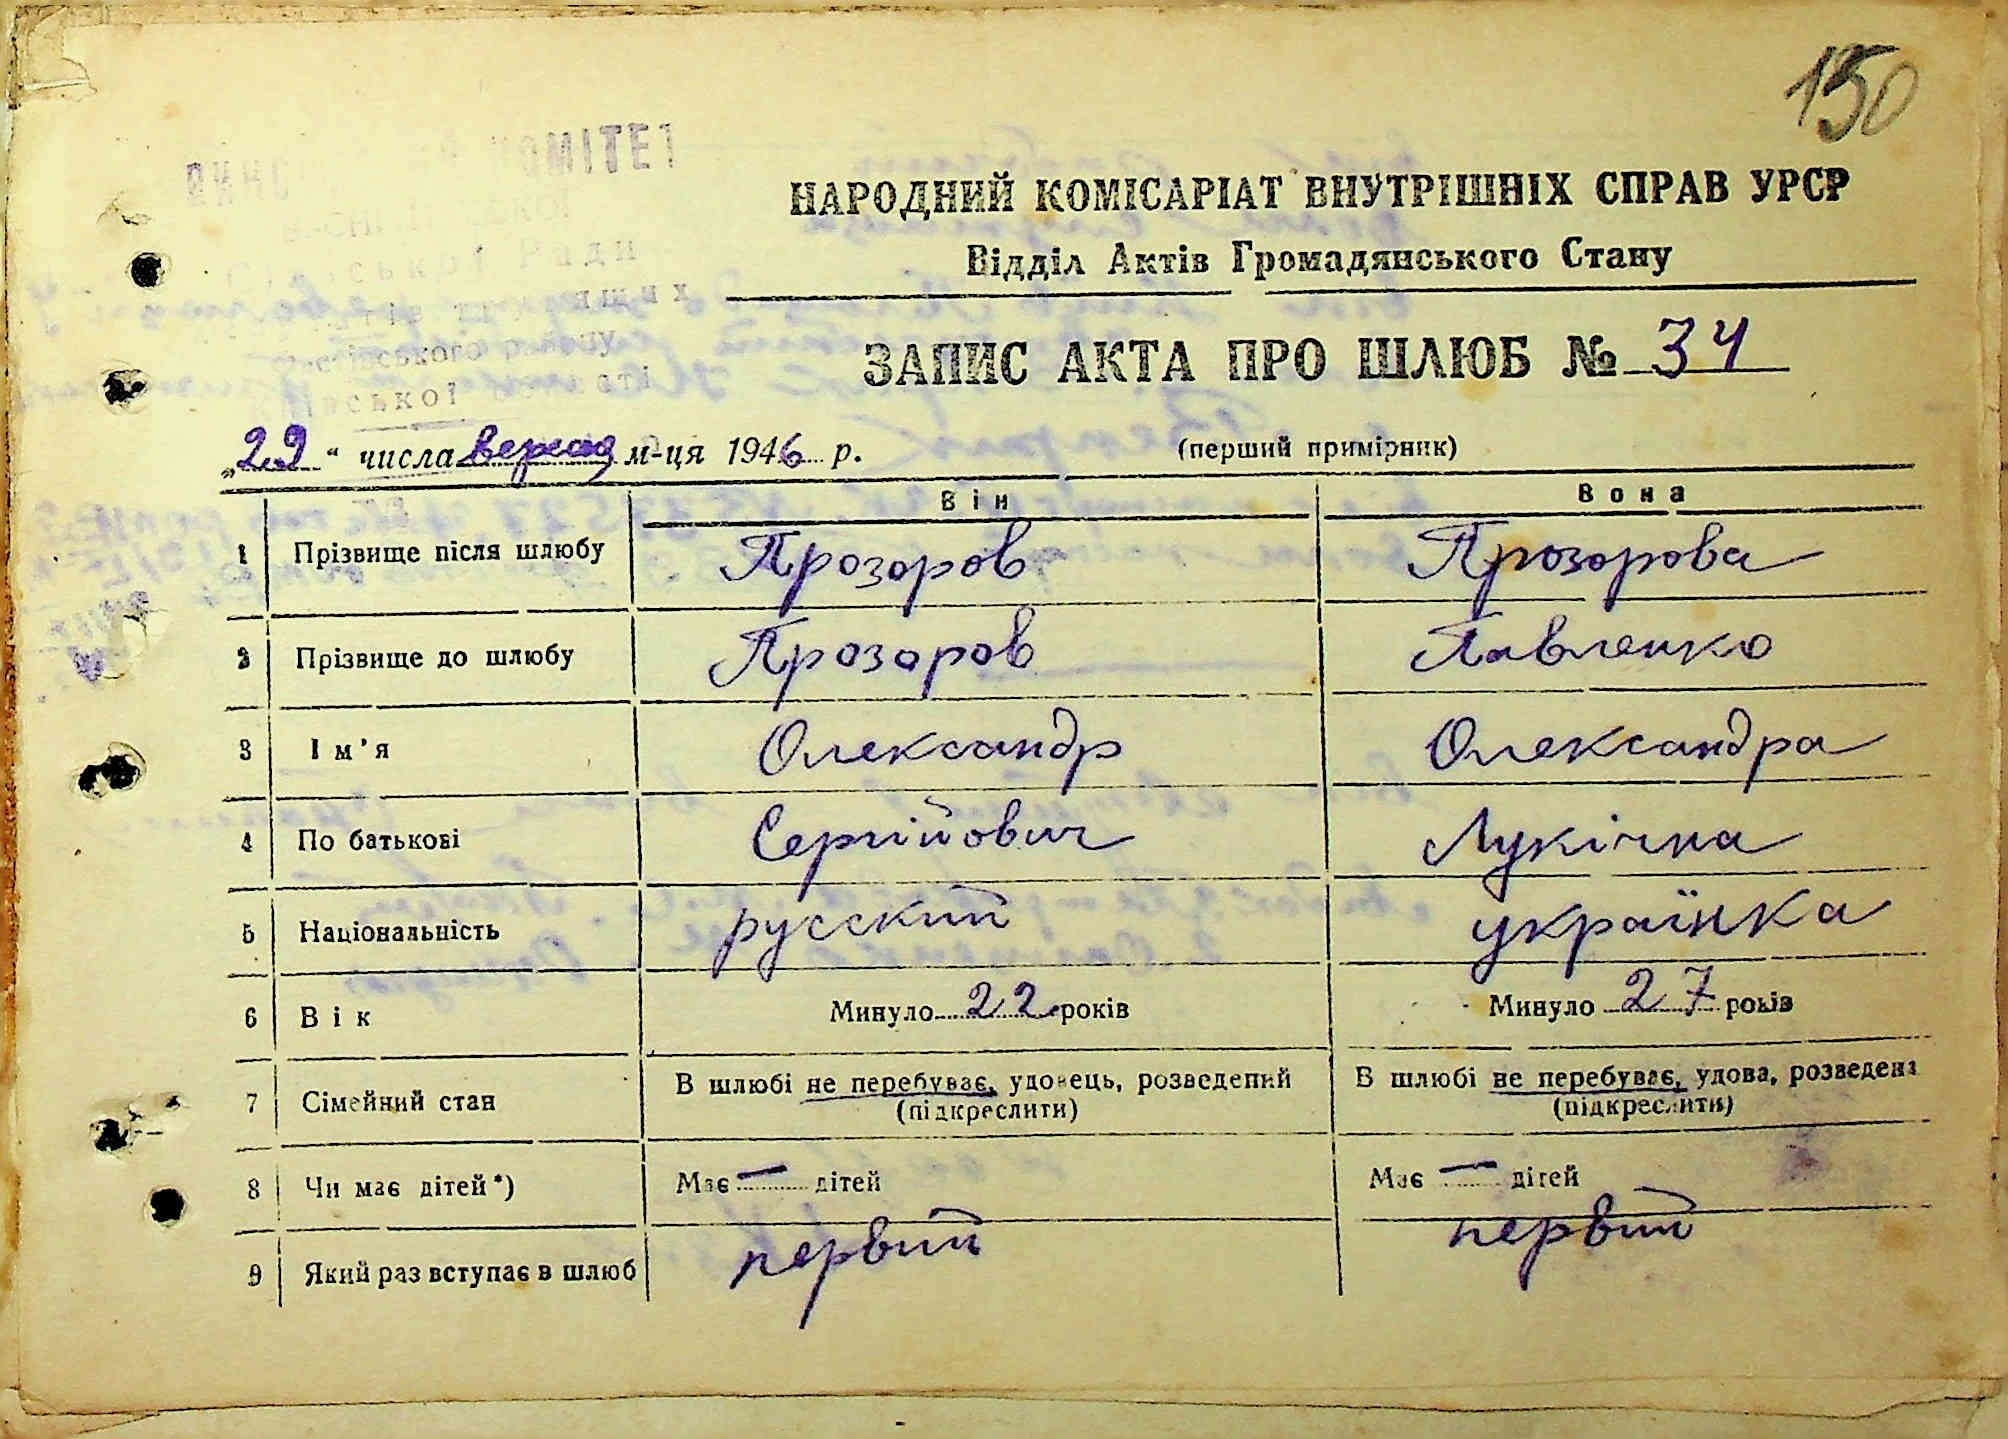 150
КОМІТЕТ
Ради
району
НАРОДНИЙ КОМІСАРІАТ ВНУТРІШНІХ СПРАВ УРСР
Відділ Актів Громадянського Стану
ЗАПИС АКТА ПРО ШЛЮБ № 34
„29“ числа вересня м-ця 1946 р. (перший примірник)
Він Вона
1 Прізвище після шлюбу Прозоров Прозорова
2 Прізвище до шлюбу Прозоров Павленко
3 Ім'я Олександр Олександра
4 По батькові Сергійович Лукічна
5 Національність русский українка
6 Вік Минуло 22 років Минуло 27 років
7 Сімейний стан В шлюбі не перебуває, удовець, розведений (підкреслити) В шлюбі не перебуває, удова, розведена (підкреслити)
8 Чи має дітей*) Має — дітей Має — дітей
9 Який раз вступає в шлюб первий первий